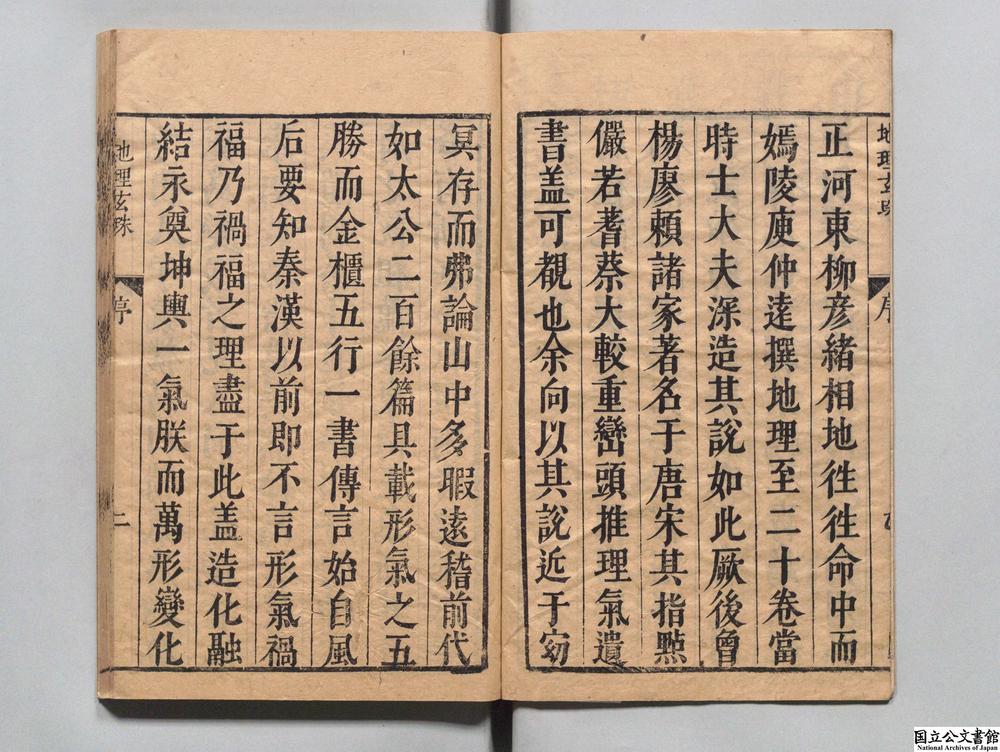 地理玄珠
序
正河東柳彦緒相地徃徃命中而
嫣陵庾仲逺撰地理至二十卷當
時士大夫深造其說如此厥後曾
楊廖頼諸家著名于唐宋其指㸃
儼若蓍蔡大較重巒頭推理氣遺
書盖可覩也余向以其說近于窈
冥存而弗論山中多暇逺稽前代
如太公二百餘篇具載形氣之五
勝而金櫃五行一書傳言始自風
后要知秦漢以前即不言形氣禍
福乃禍福之理盡于此盖造化融
結永奠坤輿一氣朕而萬形變化
地理玄珠
序
二
国立公文書館
National Archives of Japan